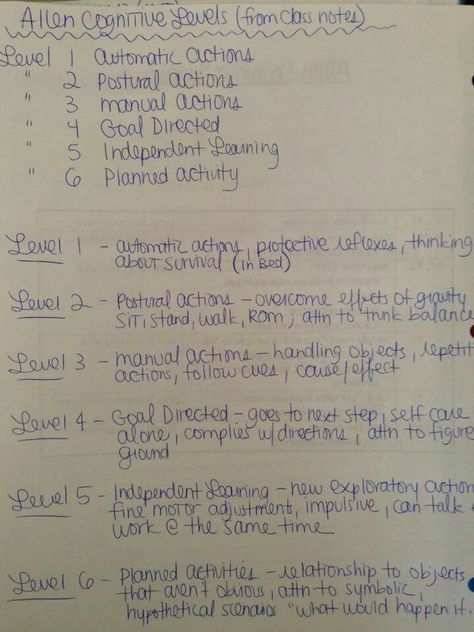 Allen Cognitive Levels (from class notes)
Level 1 automatic actions
" 2 Postural actions
" 3 manual actions
" 4 Goal Directed
" 5 Independent Learning
" 6 Planned activity
Level 1 - automatic actions, protective reflexes, thinking
about survival (in Bed)
Level 2 - Postural actions - overcome effects of gravity
SIT, stand, walk, ROM; attn to trunk balance
Level 3 - manual actions - handling objects, repetit
actions, follow cues, cause/effect
Level 4 - Goal Directed - goes to next step, self care
alone, complies w/directions, attn to figure
ground
Level 5 - Independent Learning - new exploratory action
fine motor adjustment, impulsive, can talk
work @ the same time
Level 6 - Planned activities - relationship to objects
that aren't obvious, attn to symbolic,
hypothetical scenarios "what would happen if.